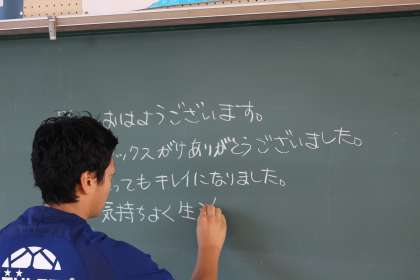 おはようございます。
ックスがけありがとうございました。
ってもキレイになりました。
気持ちよく生